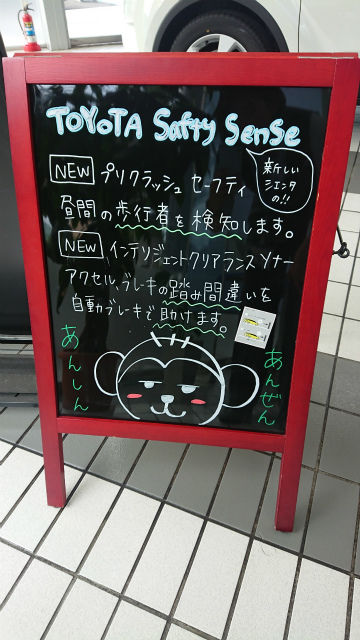 TOYOTA Safty Sense
新しい
シエンタ
の!!
NEW プリクラッシュ セーフティ
昼間の歩行者を検知します。
NEW インテリジェントクリアランスソナー
アクセル、ブレーキの踏み間違いを
自動ブレーキで助けます。
あんしん
あんぜん